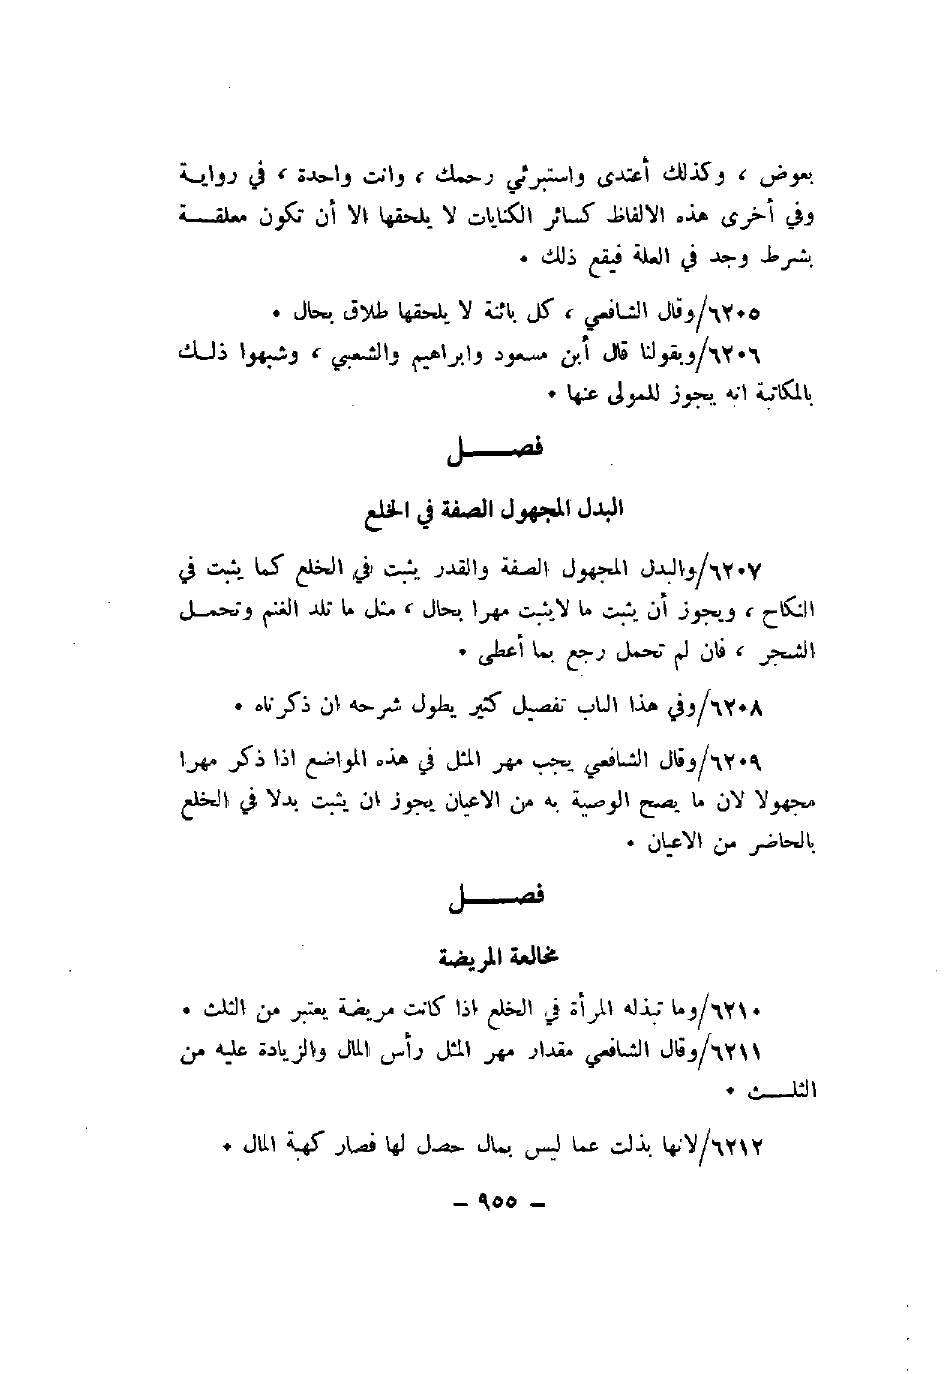 بعوض ، وكذلك أعتدى واستبرئي رحمك ، وانت واحدة ، في روايـة
وفي أخرى هذه الالفاظ كسائر الكنايات لا يلحقها الا أن تكون معلقـــة
بشرط وجد في العلة فيقع ذلك ٠
٦٢٠٥/وقال الشافعي ، كل بائنة لا يلحقها طلاق بحال ٠
٦٢٠٦/وبقولنا قال أبن مسعود وابراهيم والشعبي ، وشبهوا ذلـك
بالمكاتبة انه يجوز للمولى عنها ٠
فصـــــل
البدل المجهول الصفة في الخلع
٦٢٠٧/والبدل المجهول الصفة والقدر يثبت في الخلع كما يثبت في
النكاح ، ويجوز أن يثبت ما لايثبت مهرا بحال ، مثل ما تلد الغنم وتحمـل
الشجر ، فان لم تحمل رجع بما أعطى ٠
٦٢٠٨/وفي هذا الباب تفصيل كثير يطول شرحه ان ذكرناه ٠
٦٢٠٩/وقال الشافعي يجب مهر المثل في هذه المواضع اذا ذكر مهرا
مجهولا لان ما يصح الوصية به من الاعيان يجوز ان يثبت بدلا في الخلع
بالحاضر من الاعيان ٠
فصـــــل
مخالعة المريضة
٦٢١٠/وما تبذله المرأة في الخلع اذا كانت مريضة يعتبر من الثلث ٠
٦٢١١/وقال الشافعي مقدار مهر المثل رأس المال والزيادة عليه من
الثلـــث ٠
٦٢١٢/لانها بذلت عما ليس بمال حصل لها فصار كهبة المال ٠
– ٩٥٥ –